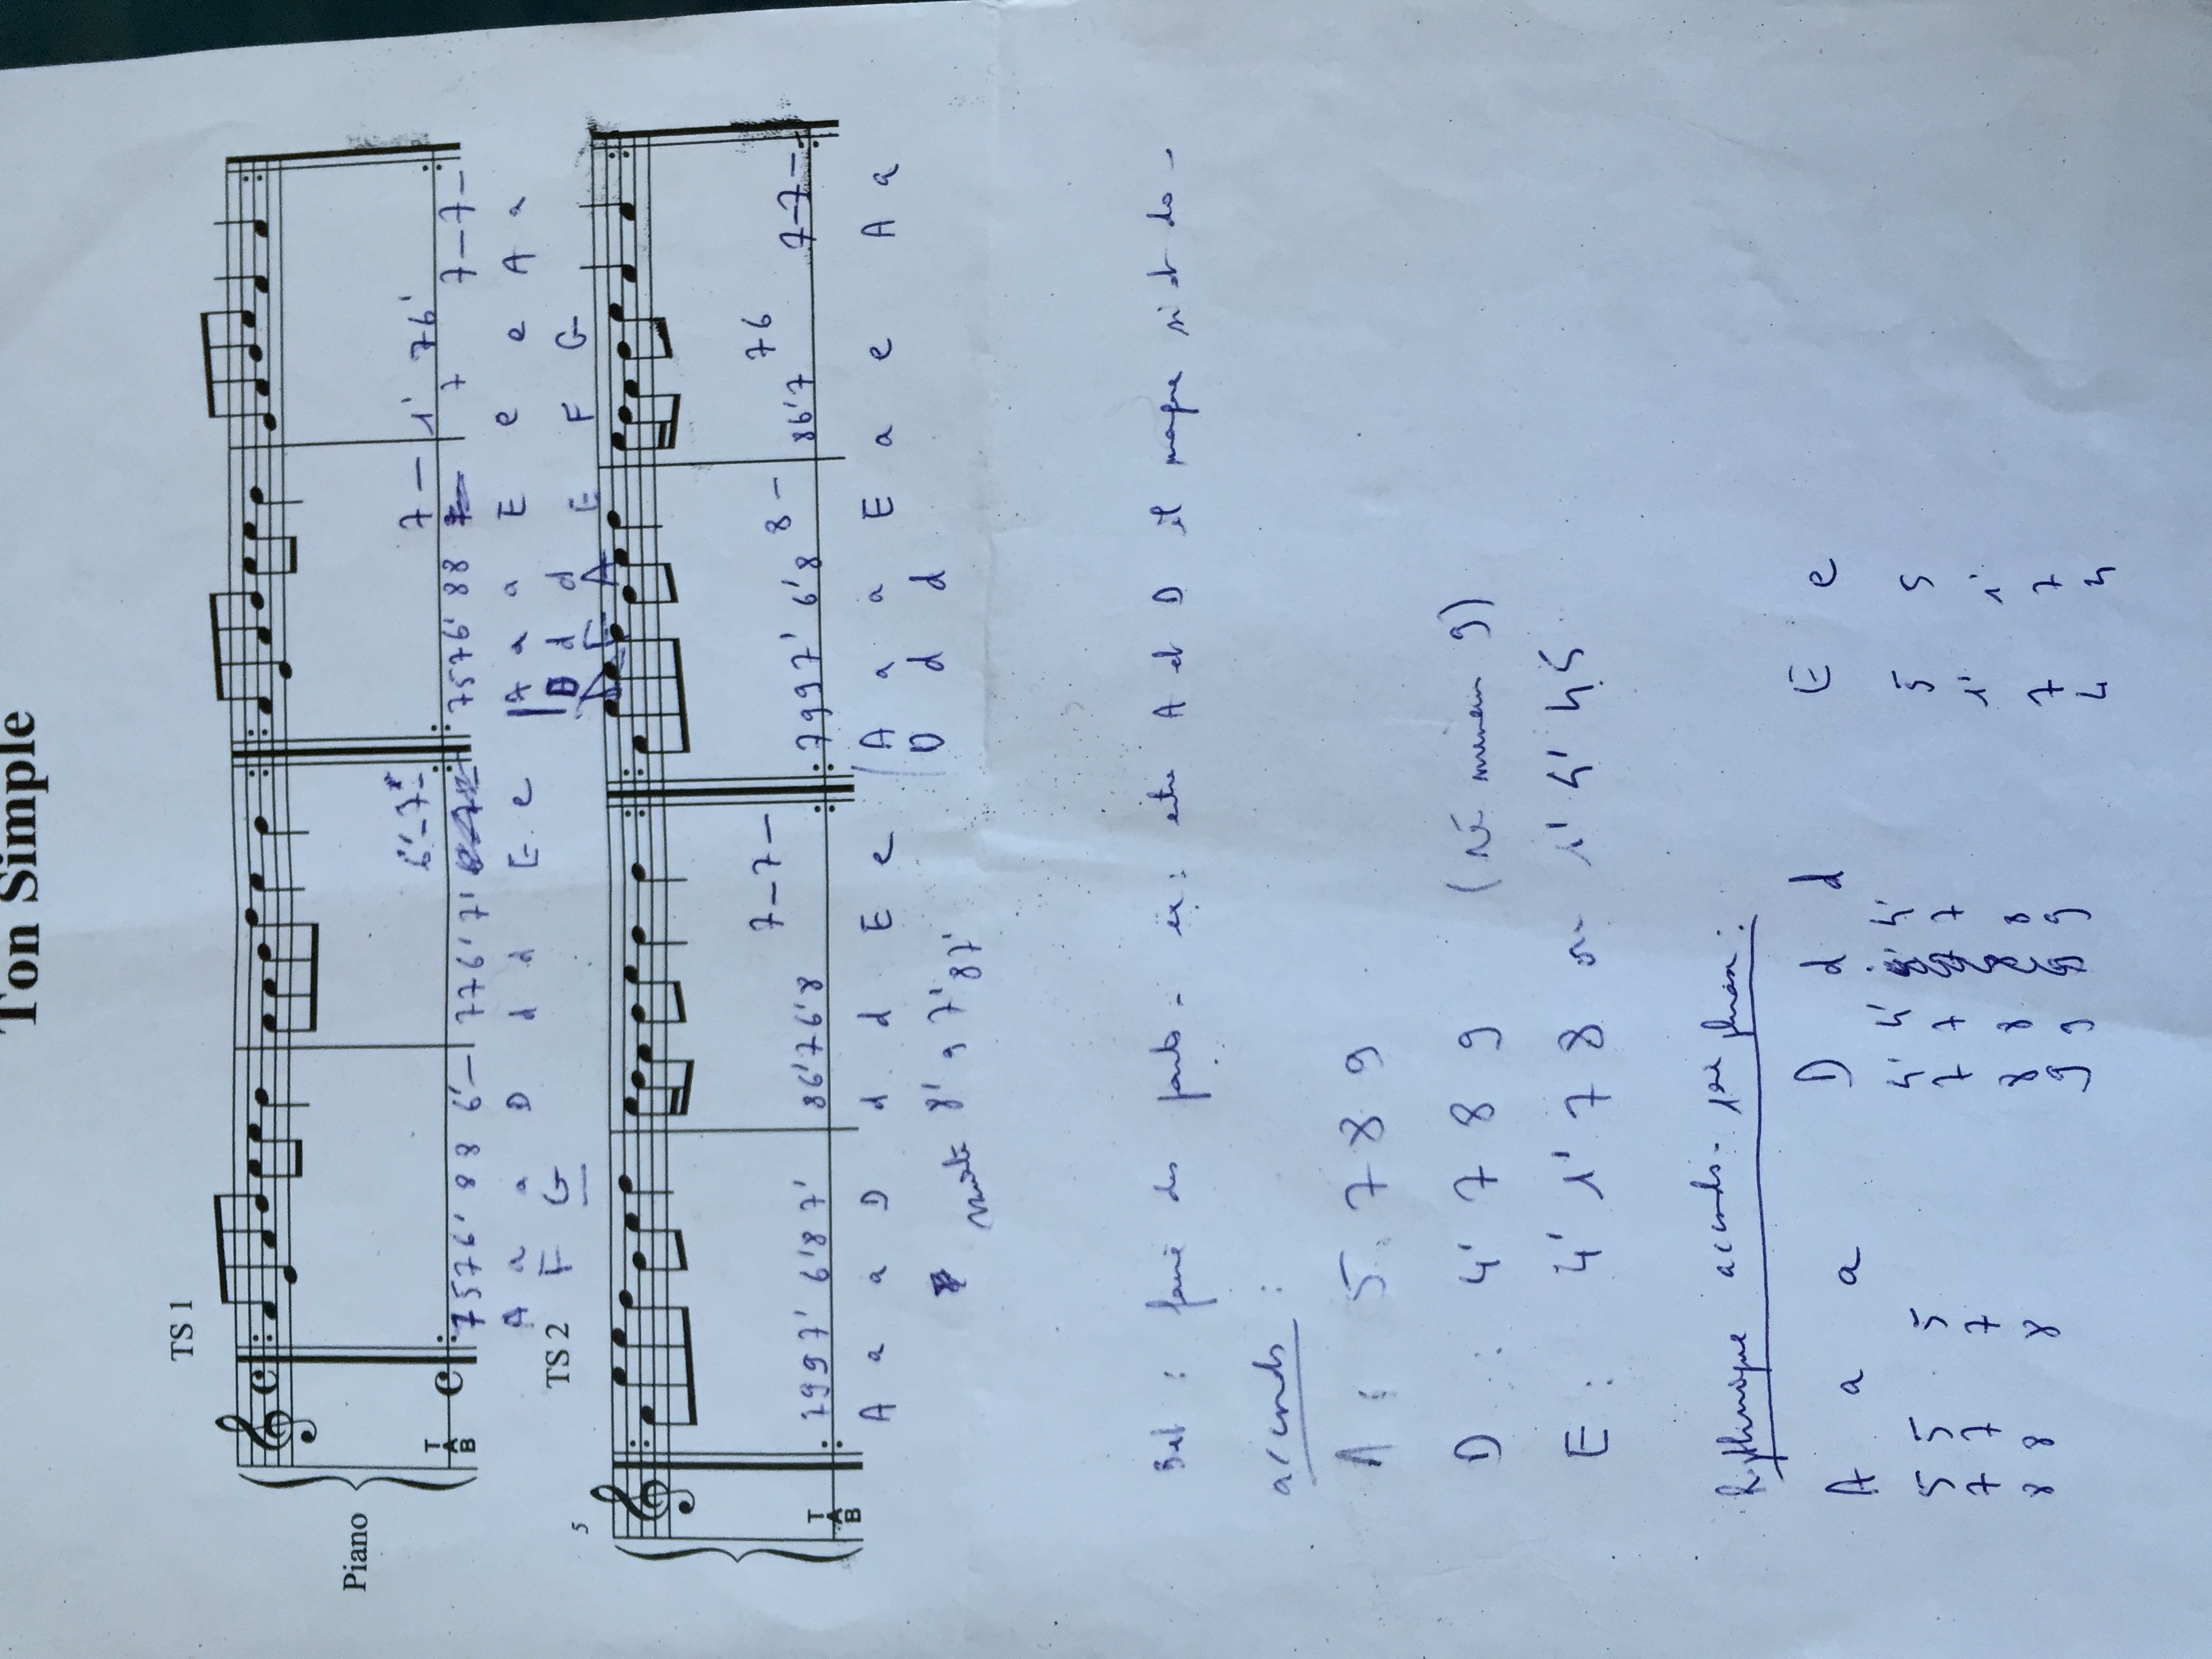 Ton Simple
TS 1
Piano
TAB
7576' 88 6'— 776'7' 6'-7'- 7576' 88 7— 1' 7 76' 7—7—
A a a D d d E e A a a E e e A a
F G D d d E F G
TS 2
5
TAB
7997' 6'87' 86'76'8 7—7— 7997' 6'8 8— 86'7 76 7—7—
A a a D d d E e (A a a E a e A a
(D d d
8' 9 7' 87'
But : faire des ponts - ex : entre A et D il manque si et do -
accords :
A : 5 7 8 9
D : 4' 7 8 9 (Ré mineur 9)
E : 4' 1' 7 8 ou 1' 4' 4 5
Rythmique accords - 1ère phrase :
A a a D d d E e
5 5 5 4' 4' 4' 5 5
7 7 7 7 7 7 1' 1'
8 8 8 8 8 8 7 7
9 9 9 4 4